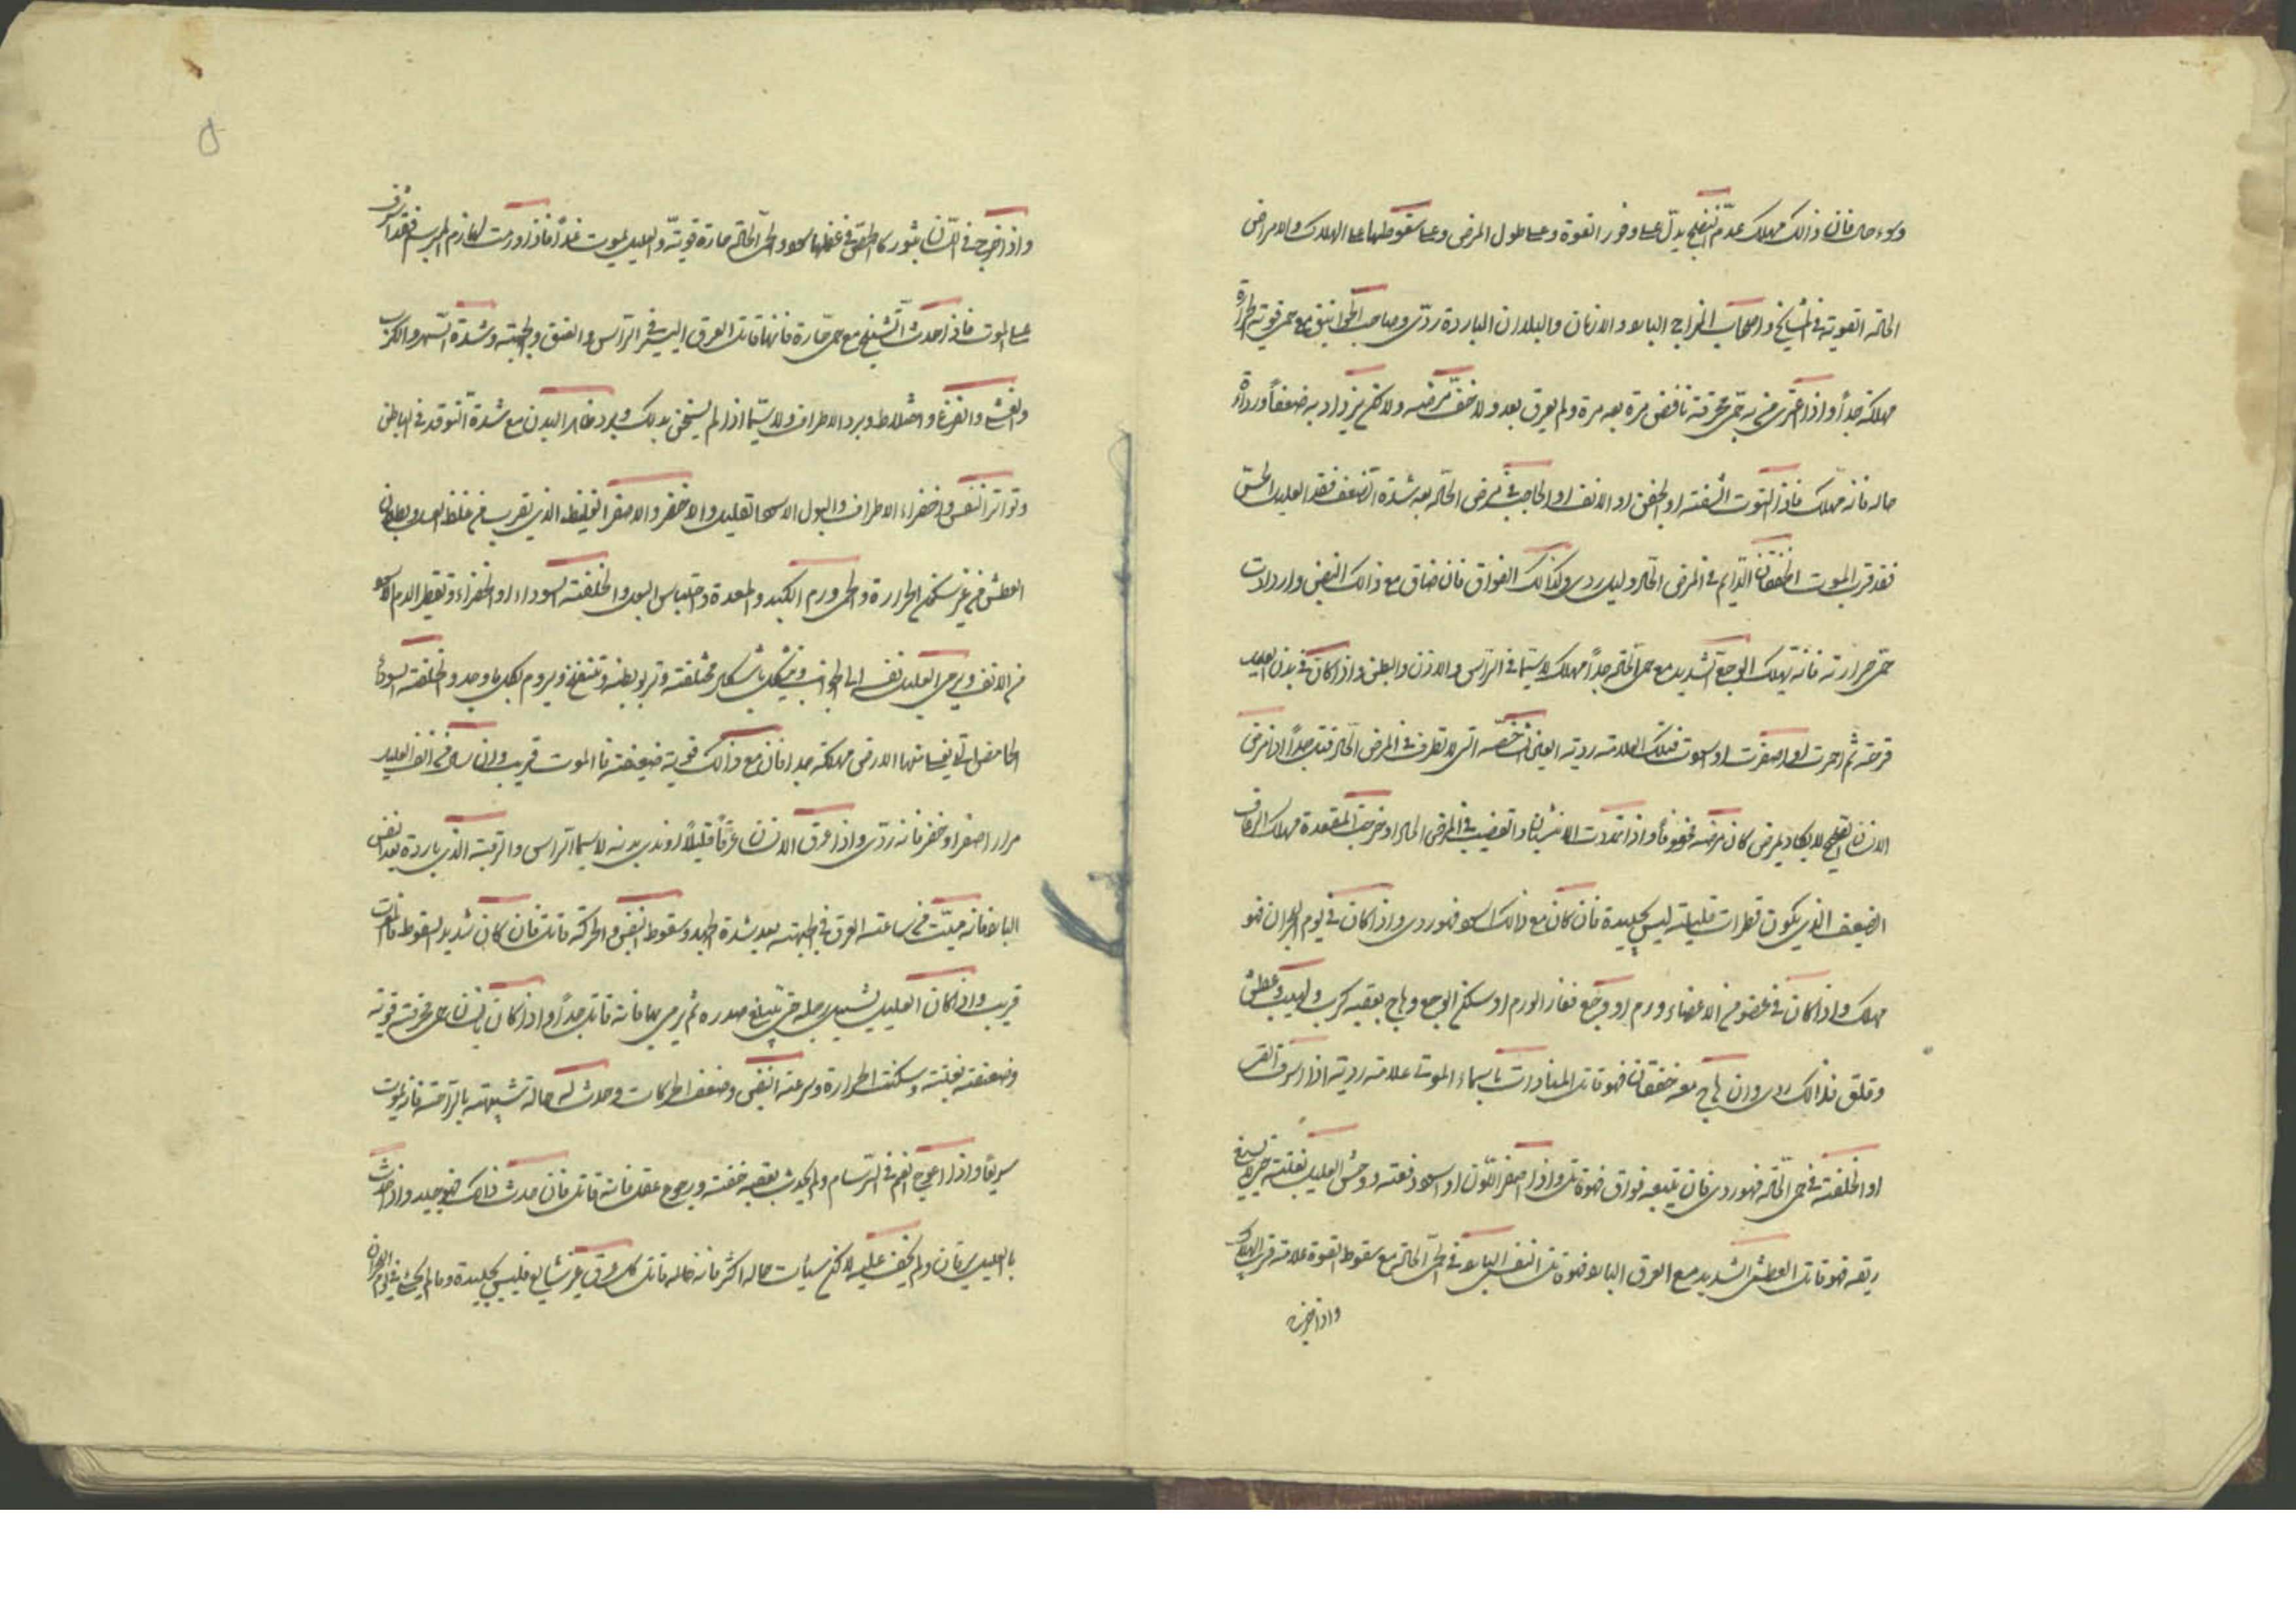 وسوء حال فان ذالك مهلك عدم النضج يدلّ على وفور القوة وعلى طول المرض وعلى سقوطها على الهلاك والامراض
الحادة القوية في المشايخ واصحاب المزاج البارد والازمان والبلدان الباردة ردّى وصاحب الخوانيق مع حمى قوية الحرارة
مهلكة جداً واذا اعترى من به حمى محرقة نافض مرّة بعد مرة ولم يعرق بعد ولا خفّ مرضه ولاكن يزداد به ضعفاً ورداءة
حاله فانه مهلك فاذا التوت الشفة او الجفن او الانف او الحاجب في مرض الحادّ بعد شدة الضعف فقد العليل الحسّ
فقد قرب الموت الخفقان الدّايم في المرض الحادّ دليل ردى وكذالك الفواق فان ضاق مع ذالك النفس وازدادت
حمى حرارته فانه يهلك الوجع الشديد مع حمى الحادّة جداً مهلك لاسيّما في الرّاس والاذن والبطن واذا كان في بدن العليل
قرحة ثم احمرت او اصفرت او اسودت فتلك العلامة ردية العين الشاخصة التي لا تطرف في المرض الحادّ قتّال جداً اذا مرض
الانسان الصحيح لا يكاد يمرض كان مرضه مخوفاً واذا تمددت الانثيان والقضيب في المرض الحاد او خرجت المقعدة مهلك الرعاف
الضعيف الذي يكون قطرات قليلة ليس بجيدة فان كان مع ذالك اسود فهو ردى واذا كان في يوم البحران فهو
مهلك واذا كان في عضو من الاعضاء ورم او وجع فغار الورم او سكن الوجع وهاج بعقبه كرب ولهيب وعطش
وقلق فذالك ردى وان هاج معه خفقان فهو قاتل المنادات باسماء الموتى علامة ردية اذا اسرف القى
او الخلفة في حمى الحادّة فهو ردى فان يتبعه فواق فهو قاتل واذا اصفر اللون او اسود دفعة
ريقه فهو قاتل العطش الشديد مع العرق البارد فهو قاتل النفس البارد في الحمى الحادّة مع سقوط القوة علامة قرب الهلاك
واذا خرجت
واذا خرج في اللسان بثور كالحمّص في عظمها سود والحمى الحادّة حارة قوية والعليل يموت غداً فاذا ورمت فقد اشرف
على الموت فاذا حدث التشنّج مع حمى حارة فانها قاتل العرق اليسير في الراس والعنق والجبهة وشدة السهر والكرب
والغشى والفزع واختلاط وبرد الاطراف ولا سيّما اذا لم يسخن بدلك وبرد ظاهر البدن مع شدة التوقد في الباطن
وتواتر النفس واخضراء الاطراف والبول الاسود القليل والاخضر والاصفر الغليظ الذي يقرب من غلظ العسل وبطلان
العطش من غير سكون الحرارة والحمى وورم الكبد والمعدة واحتباس البول والخلفة السوداء او الخضراء وتقطر الدم الاسود
من الانف ويرمى العليل نفسه الى الجوانب ويتشكل باشكال مختلفة وتربو بطنه وتنتفخ ويروم لكل ما وجد والخلفة السوداء
الحامض التي يغلى منها الارض مهلكة جدا فان مع ذالك قوية ضعيفة فالموت قريب وان سال من انف العليل
مرار اصفر او خضر فانه ردّى واذا عرق الانسان عرقاً قليلاً او ندى بدنه لاسيما الراس والرقبة الذي باردة بعد النفس
البارد فانه ميّت من ساعته العرق في الجبهة بعد شدة الجهد وسقوط النفس والحركة قاتل فان كان شديد السقوط فالموت
قريب واذا كان العليل يشيل رجله حتى تبلغ صدره ثم يرمى بها فانه قاتل جداً واذا كان بانسان حمى محرقة قوية
وضعفته بغتة وسكنت الحرارة وسرعة النفس وضعف الحركات وحدث له حالة شبيهة بالراحة فانه يموت
سريعاً واذا اعوج الفم في السّرسام ولم يحدث بعقبه خفة ورجوع عقل فانه قاتل فان حدث ذالك فهو جيد واذا حدث
بالعليل يرقان ولم يخف عليه لاكن سيأت حاله اكثر فانه حاله قاتل كل عرق غير شايع فليس بجيدة وما لم يجئ في يوم البحران